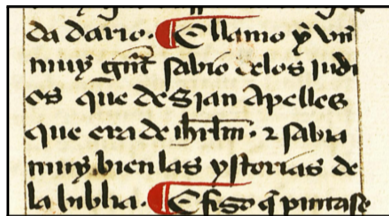 da dario. ¶ E llamo y vn
muy grãt sabio de los judi
os que dezian Apelles
que era de ihrlm̃ · ⁊ sabia
muy bien las ystorias de
la biblia. ¶ E fizo q̃ pintase